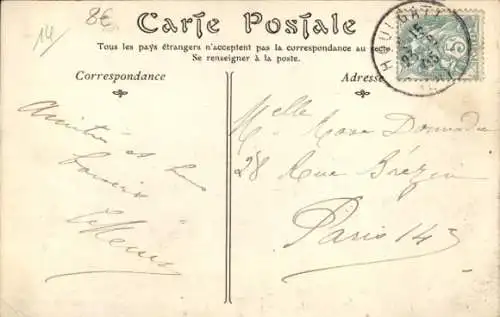 14
8€
Carte Postale
Tous les pays étrangers n'acceptent pas la correspondance au recto.
Se renseigner à la poste.
Correspondance
Adresse
HOULGATE
15
05
5
Amitiés et bons
Melle Rose
28 Rue Brézin
Paris 14e